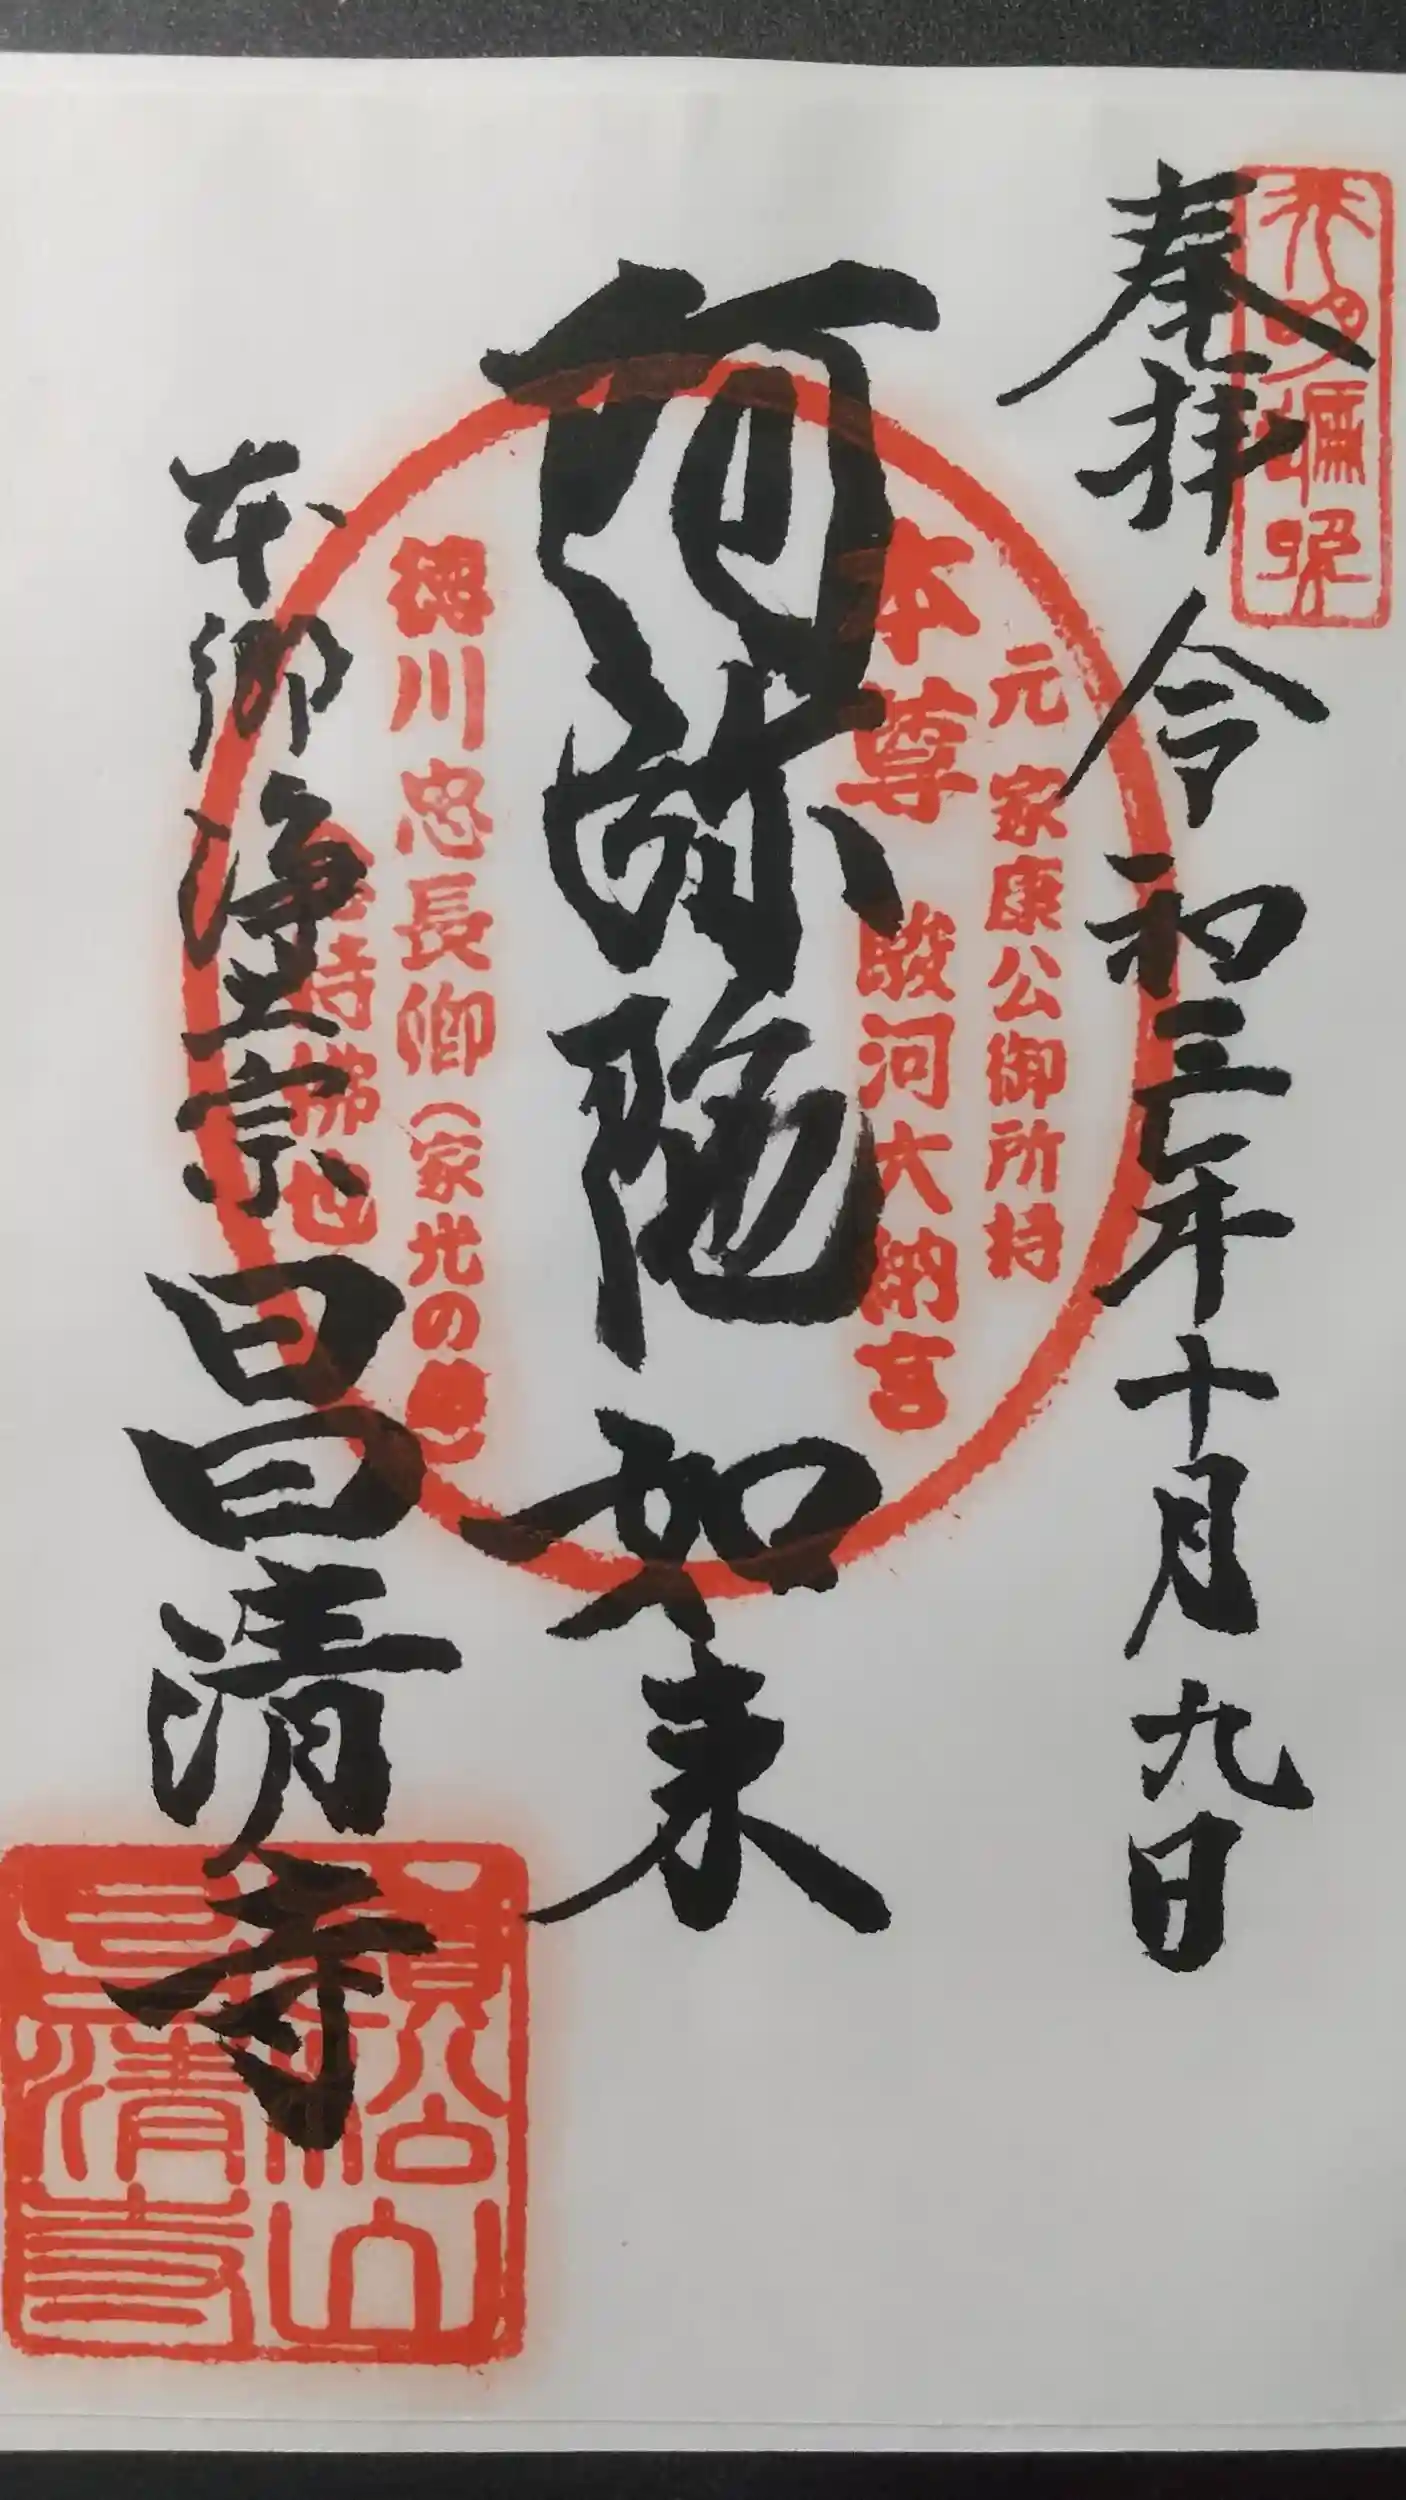 奉拝 令和三年十月九日
元 家康公御所持
本尊 駿河大納言
阿弥陀如来
徳川忠長卿（家光の弟）
念持佛也
本郷 浄土宗 昌清寺
昌清寺